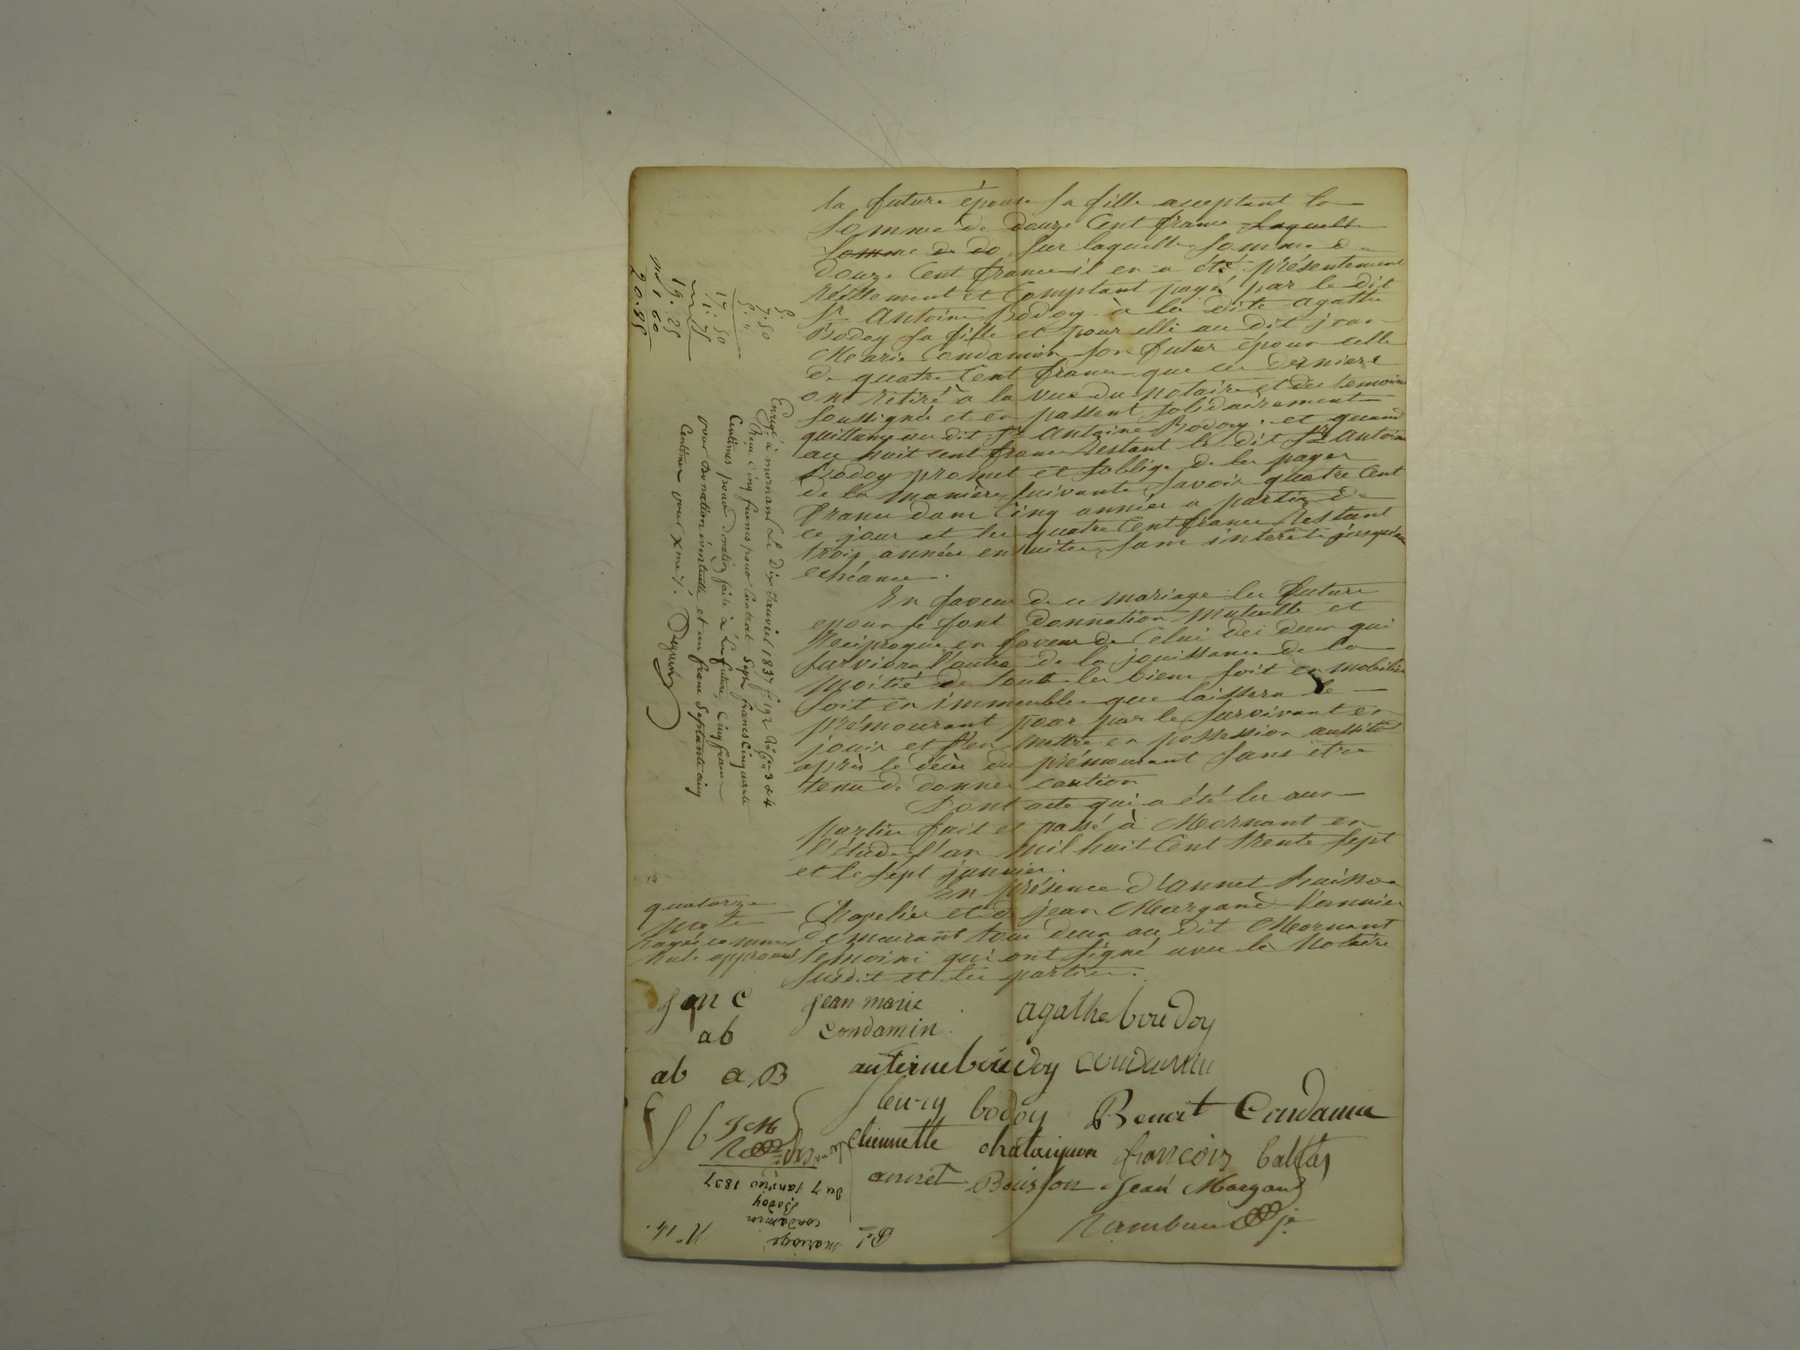 la future épouse sa fille acceptant la
somme de douze cent francs laquelle
somme de do sur laquelle somme de
douze cent francs il en a été présentement
réellement et comptant payé par le dit
sr Antoine Bodoy à la dite agathe
Bodoy sa fille et pour elle au dit jean
Marie Condamin son futur époux celle
de quatre cent francs que ces derniers
ont retiré a la vue du notaire et des temoins
soussignés et en passent solidairement
quittance au dit sr Antoine Bodoy. et quand
au huit cent francs restant le dit sr Antoine
Bodoy promet et soblige de les payer
de la manière suivante savoir quatre cent
francs dans cinq années a partir de
ce jour et les quatre cent francs restant
trois années ensuite sans intérêts jusqu'au
echéance.
En faveur de ce mariage les futurs
epoux se font donnation mutuelle et
Réciproque en faveur de celui des deux qui
survivra l'autre de la jouissance de la
moitié de tout les biens soit en mobilier
soit en immeubles que laissera le
prémourant pour par le survivant en
jouir et s'en mettre en possession aussitôt
après le décès du prémourant sans être
tenu de donner caution
Dont acte qui a été lu aux
parties fait et passé à Mornant en
l'étude l'an mil huit cent trente sept
et le sept janvier.
En présence d'annet buisson
Chapelier et de jean Margand Vannier
demeurant tous deux au dit Mornant
temoins qui ont signé avec le Notaire
susdit et les parties.
quatorze
mots
rayés comme
nuls approuvés
jm c
ab
ab a,B
f b J M
jean marie
condamin
agathe boudoy
antoine boudoy condamin
fleury bodoy Benoit Condamin
etiennette chataignon françois ballas
annet Buisson Jean Margand
5.
7. 50
5. "
17. 50
1. 75
19. 25
1. 60
20. 85
Enregé à mornant Le Dix Janvier 1837 fo 192 Ro Cs 3 & 4
Reçu cinq francs pour Contrat Sept francs Cinquante
Centimes pour donation faite à la future, Cinq francs
pour donation éventuelle, et un franc Septante cinq
Centimes pour Xme %.
N° 14.
mariage
condamin
Bodoy
du 7 janvier 1837